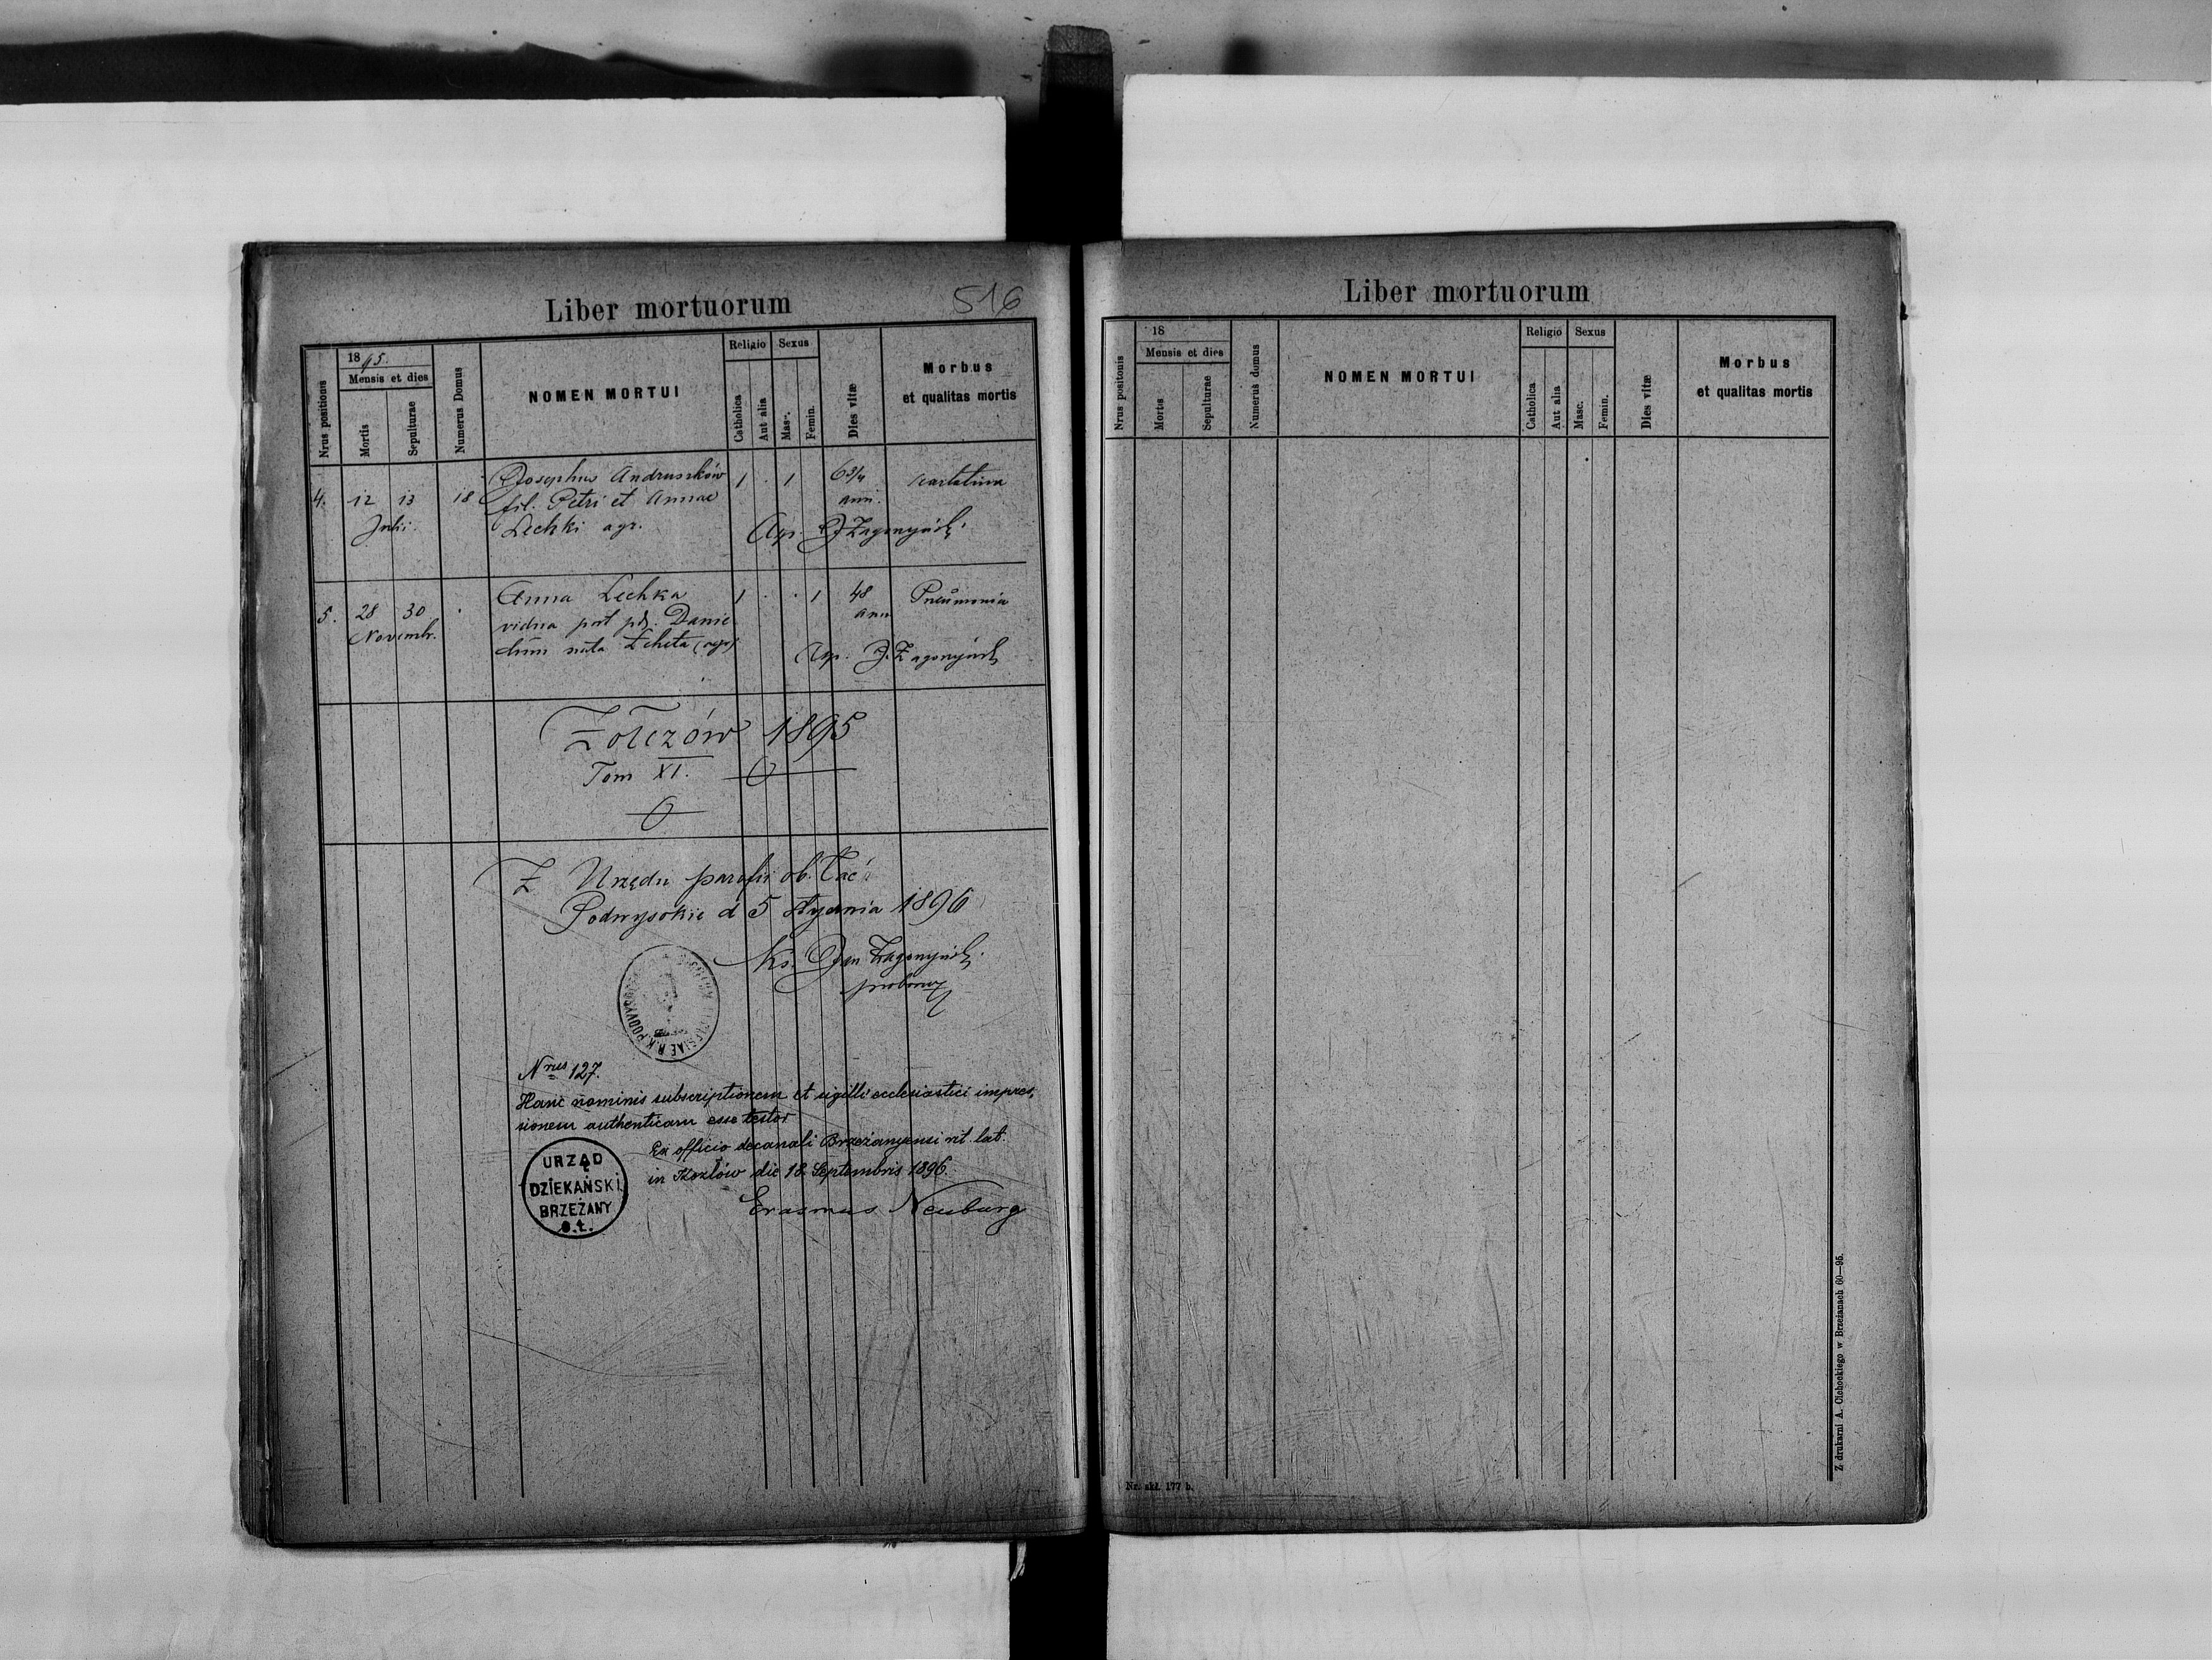 Liber mortuorum
516
Nrus positionis
1895.
Mensis et dies
Mortis
Sepulturae
Numerus Domus
NOMEN MORTUI
Religio
Catholica
Aut alia
Sexus
Masc.
Femin.
Dies vitæ
Morbus
et qualitas mortis
4. 12 13 18 Josephus Andrusków 1 . 1 6 3/4
Julii. fil. Petri et Annae anni.
Lechki agr. J Zagonyńsk
5. 28 30 . Anna Lechka 1 . . 1 48 Pneumonia
Novembr. vidua post Danie
lem nata (agr) ann
J. Zagonyńsk
Żołczów 1895
Tom XI. 0
0
Z Urzędu parafii ob. łać
Podwysokie d 5 stycznia 1896
Ks. Jan Zagonyńsk
proboszcz
ECCLESIAE R. K. PODWYSO
Nrus 127.
Hanc nominis subscriptionem et sigilli ecclesiastici impres,
sionem authenticam esse testor
Ex officio decanali Brzeżanyensi rit. lat.
in Kozłów die 18 Septembris 1896
Erasmus Neuburg
URZĄD
DZIEKAŃSKI
BRZEŻANY
o.ł.
Liber mortuorum
Nrus positonis
18
Mensis et dies
Mortis
Sepulturae
Numerus domus
NOMEN MORTUI
Religio
Catholica
Aut alia
Sexus
Masc.
Femin.
Dies vitæ
Morbus
et qualitas mortis
Nr. skł. 177 b.
Z drukarni A. Cichockiego w Brzeżanach 60—95.